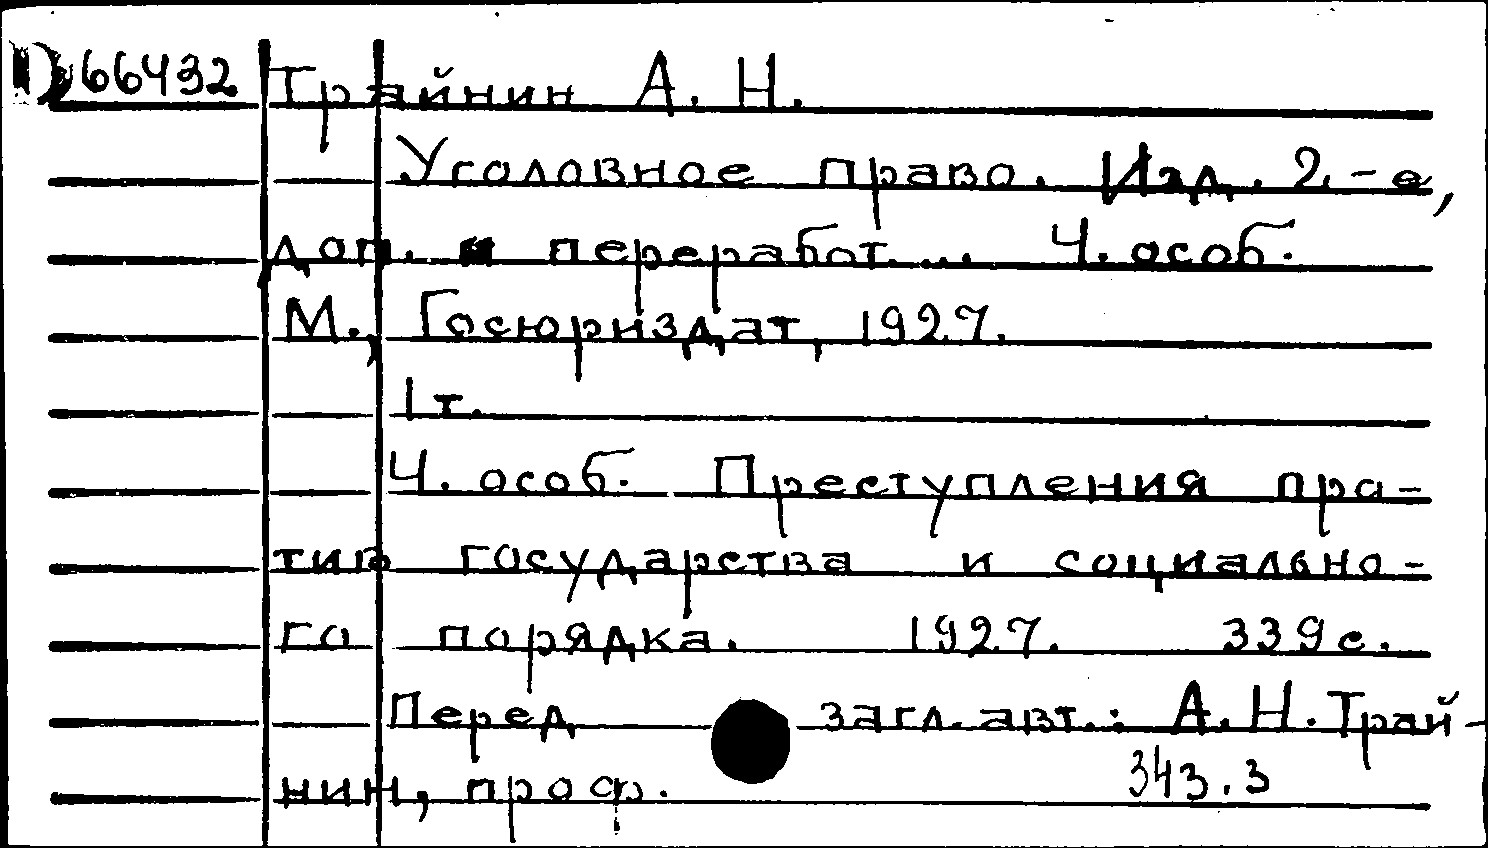 66432 Трайнин А. Н.
Уголовное право. Изд. 2-е,
доп. и переработ. ... Ч. особ.
М., Госюриздат, 1927.
1 т.
Ч. особ. Преступления про-
тив государства и социально-
го порядка. 1927. 339 с.
Перед загл. авт.: А. Н. Трай-
нин, проф.
343.3